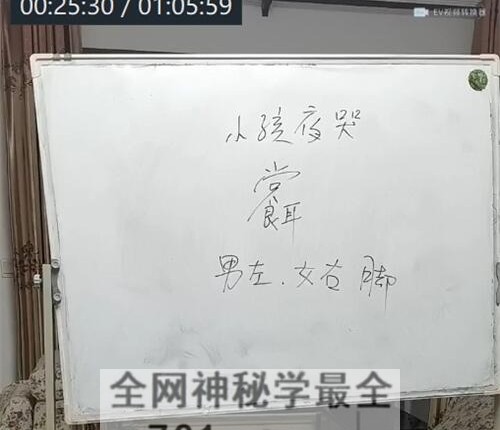 00:25:30 / 01:05:59
EV视频转换器
小孩夜哭
男左.女右脚
全网神秘学最全